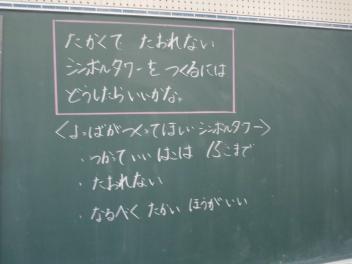 たかくて たおれない
シンボルタワーを つくるには
どうしたらいいかな。
＜よつばがつくってほしい シンボルタワー＞
・つかっていい はこは 15こまで
・たおれない
・なるべく たかい ほうがいい